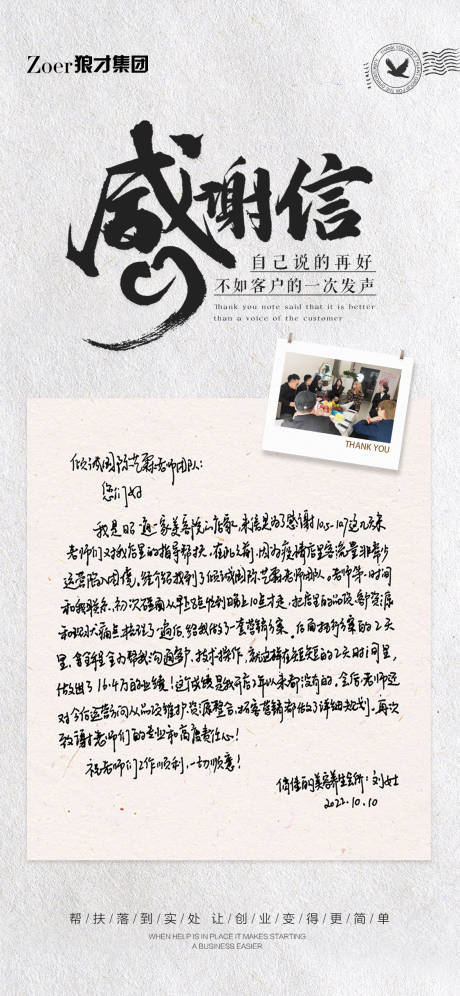 Zoer狼才集团
感谢信
自己说的再好
不如客户的一次发声
Thank you note said that it is better
than a voice of the customer
THANK YOU
倾诚国际芸霖老师团队:
您们好
我是昭通一家美容院的店家,来信是为了感谢10.5-10.7这几天来
老师们对我店里的指导帮扶。在此之前,因为疫情店里客流量非常少
运营陷入困境,经介绍找到了倾诚国际芸霖老师团队。老师第一时间
和我联系,初次碰面从早上8点忙到晚上10点才走,把店里的品项、客资源
和现状痛点梳理了一遍后,给我做了一套营销方案。后面执行方案的2天
里,老师全力帮我沟通客户、技术操作,就这样在短短的2天时间里,
做出了16.4万的业绩!这个业绩是我开店7年以来都没有的。今后老师还
对今后运营方向从品项维护、资源整合、拓客营销都做了详细规划。再次
致谢老师们的专业和高度责任心!
祝老师们工作顺利,一切顺意!
俏佳丽美容养生会所:刘女士
2022.10.10
帮/扶/落/到/实/处 让/创/业/变/得/更/简/单
WHEN HELP IS IN PLACE IT MAKES STARTING
A BUSINESS EASIER